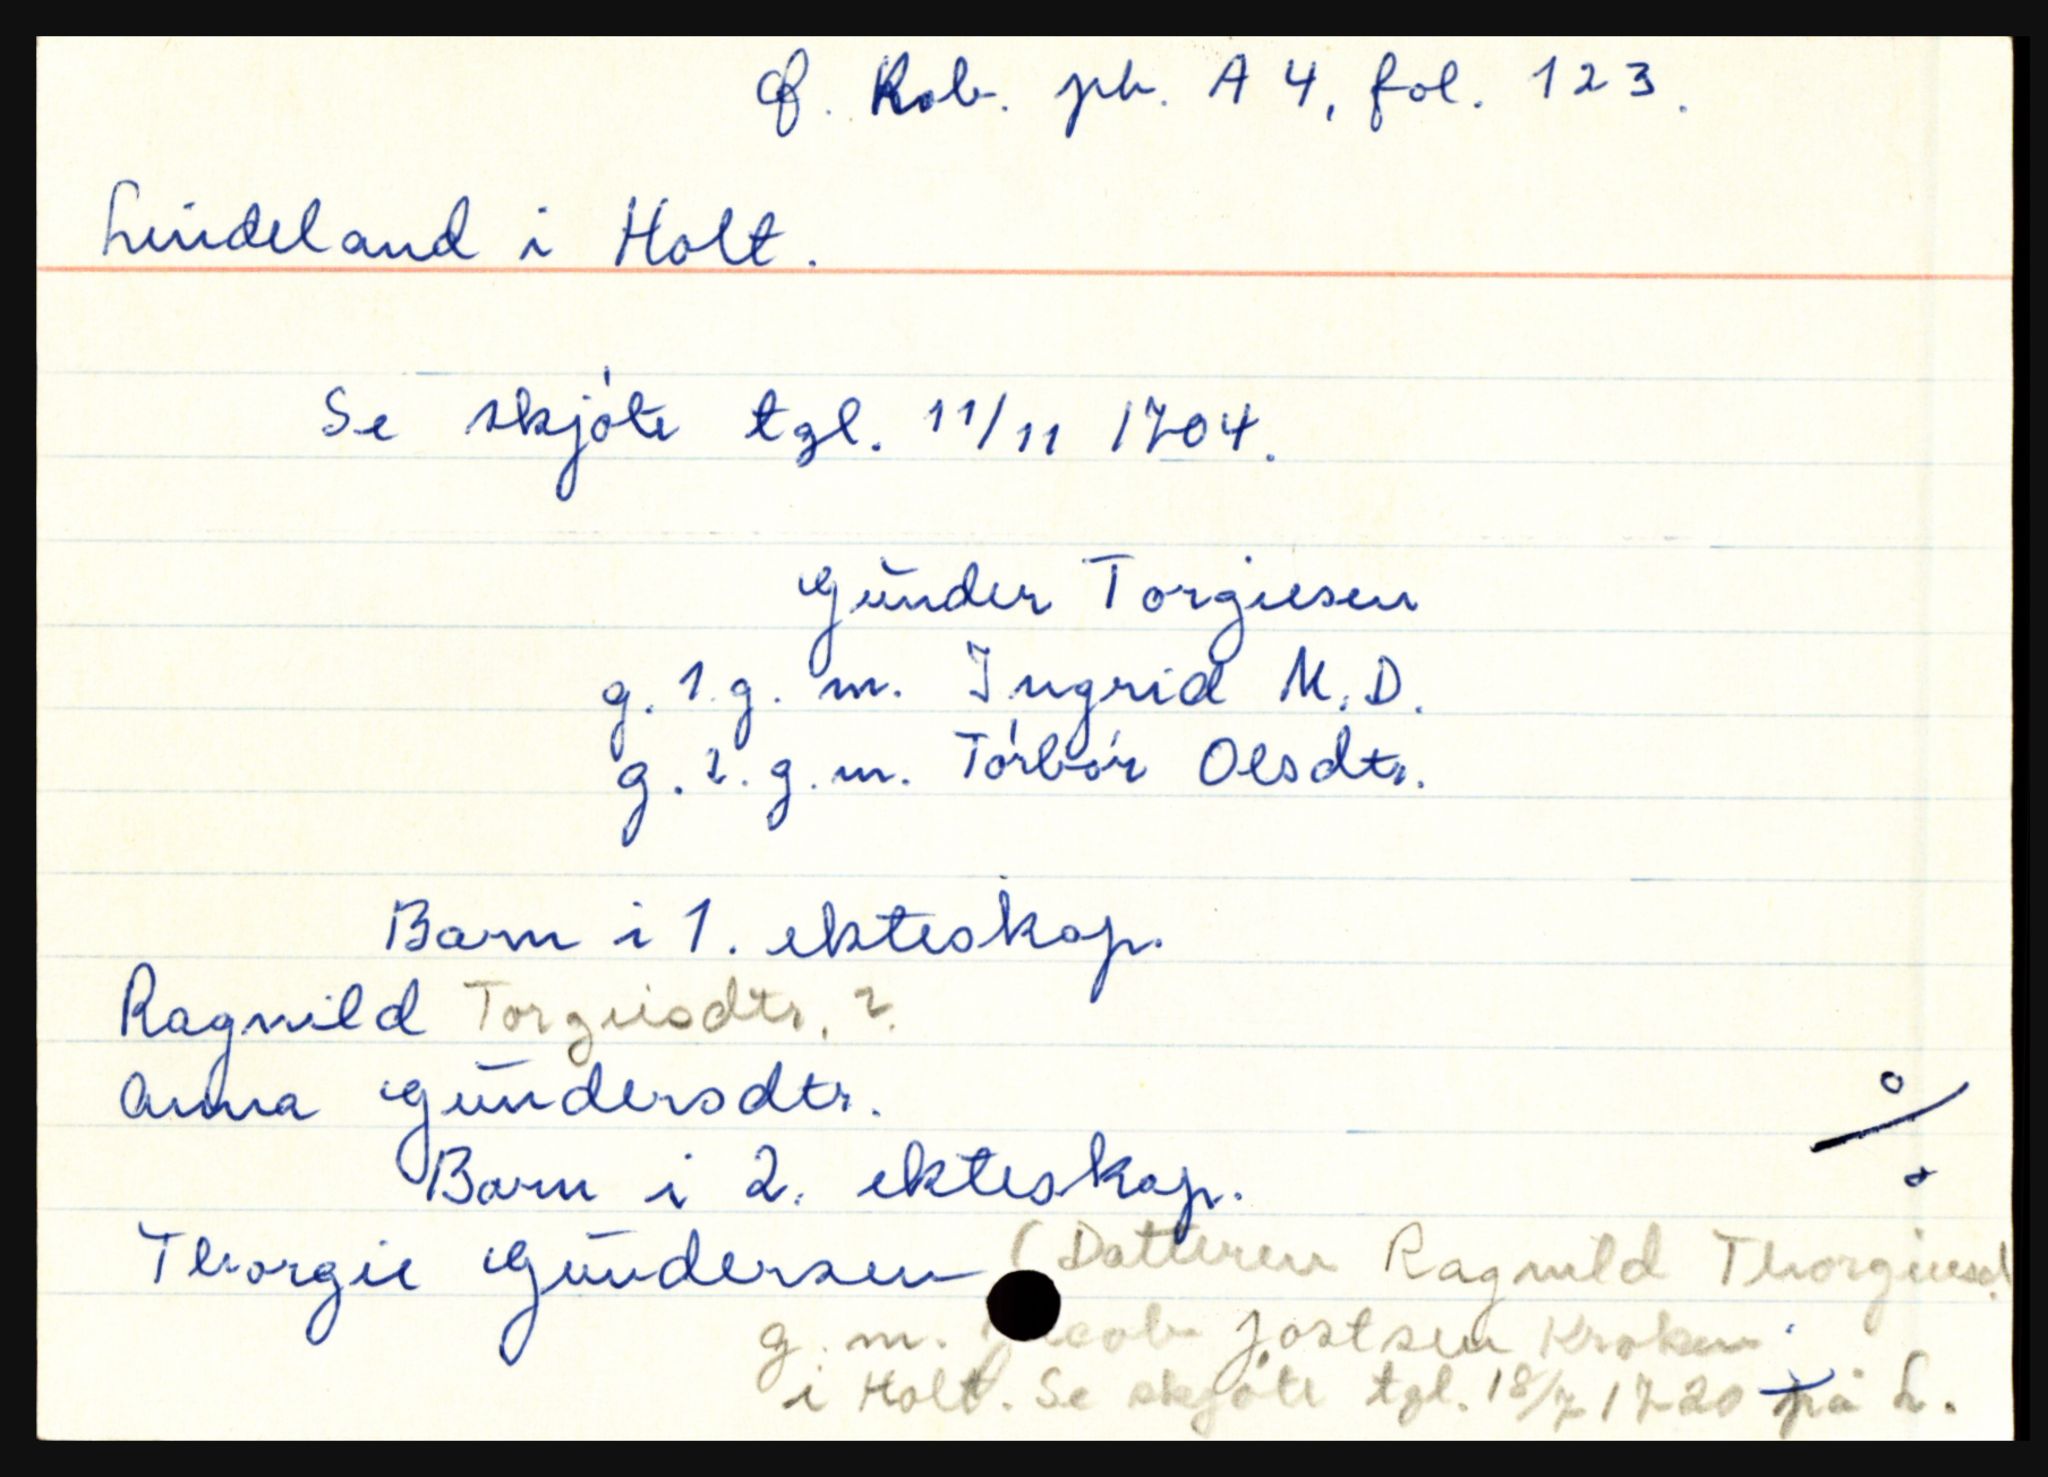 cf. Rob. pb. A 4, fol. 123.
Lindeland i Holt.
Se skjóte tgl. 11/11 1704.
Gŭnder Torgiesen
g. 1. g. m. Ingrid M. D.
g. 2. g. m. Tórbór Olsdtr.
Barn i 1. ekteskap.
Ragnild Torgiisdtr. ?
Anna Gŭndersdtr.
Barn i 2. ekteskap.
Thorgie Gŭndersen (Datteren Ragnild Thorgiesd.
g. m. Jacob Jostsen Kroken
i Holt. Se skjóte tgl. 18/7 1720 på L.
%